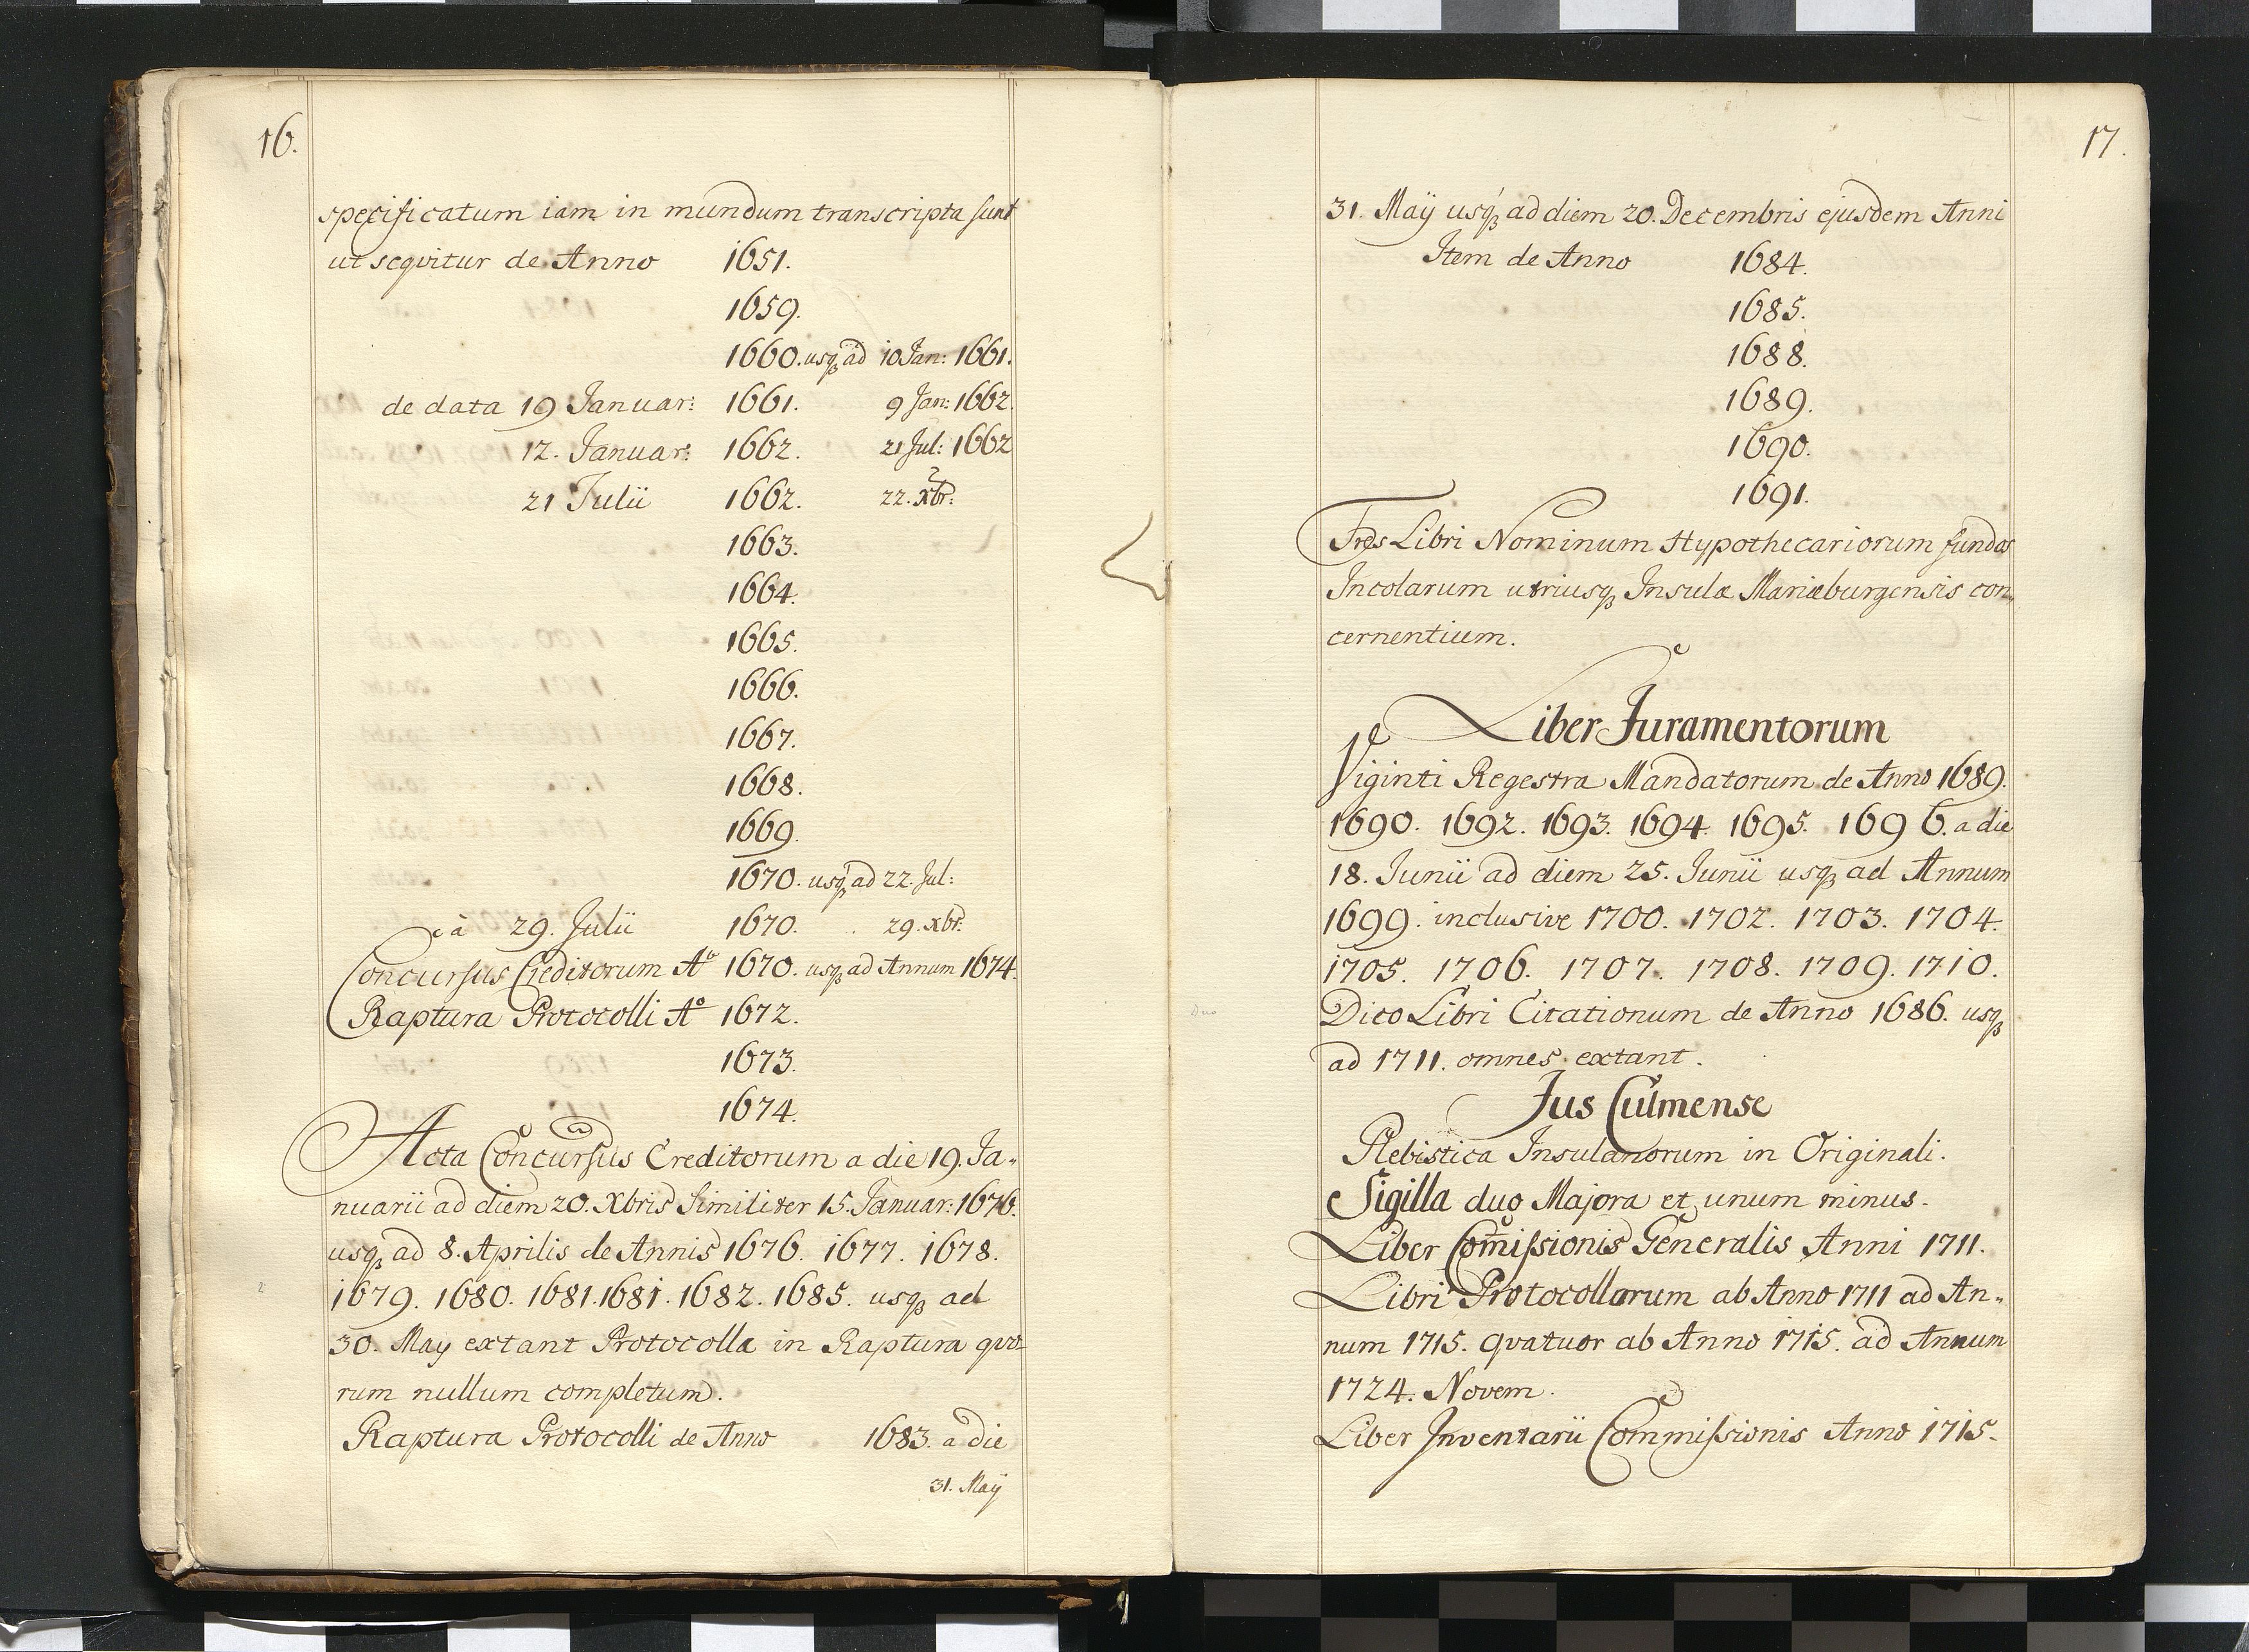 16.
specificatum iam in mundum transcripta sunt
ut seqvitur de Anno 1651.
1659.
1660. usqꝫ ad 10 Jan: 1661.
de data 19 Januar: 1661. 9 Jan: 1662.
12. Januar: 1662. 21 Jul: 1662
21 Julii 1662. 22. xbr:
1663.
1664.
1665.
1666.
1667.
1668.
1669.
1670. usqꝫ ad 22. Jul:
à 29. Julii 1670. 29. xbr.
Concursus Creditorum Aº 1670. usqꝫ ad Annum 1674.
Raptura Protocolli Aº 1672.
1673.
1674.
Acta Concursus Creditorum a die 19. Ja„
nuarii ad diem 20. Xbris Similiter 15. Januar: 1676.
usqꝫ ad 8. Aprilis de Annis 1676. 1677. 1678.
1679. 1680. 1681. 1681. 1682. 1685. usqꝫ ad
30. May extant Protocolla in Raptura qvo
rum nullum completum.
Raptura Protocolli de Anno 1683. a die
31. Maÿ
17.
31. Maÿ usqꝫ ad diem 20. Decembris ejusdem Anni
Item de Anno 1684.
1685.
1688.
1689.
1690.
1691.
Tres Libri Nominum Hypothecariorum fundos
Incolarum utriusqꝫ Insulæ Mariæburgensis con„
cernentium.
Liber Juramentorum
Viginti Regestra Mandatorum de Anno 1689.
1690. 1692. 1693. 1694. 1695. 1696. a die
18. Junii ad diem 25. Junii usqꝫ ad Annum
1699. inclusive 1700. 1702. 1703. 1704.
1705. 1706. 1707. 1708. 1709. 1710.
Dico Libri Citationum de Anno 1686. usqꝫ
ad 1711. omnes extant.
Jus Culmense
Plebistica Insulanorum in Originali.
Sigilla duo Majora et unum minus.
Liber Com̅issionis Generalis Anni 1711.
Libri Protocollorum ab Anno 1711 ad An„
num 1715. qvatuor ab Anno 1715. ad Annum
1724. Novem.
Liber Inventarii Commissionis Anno 1715.